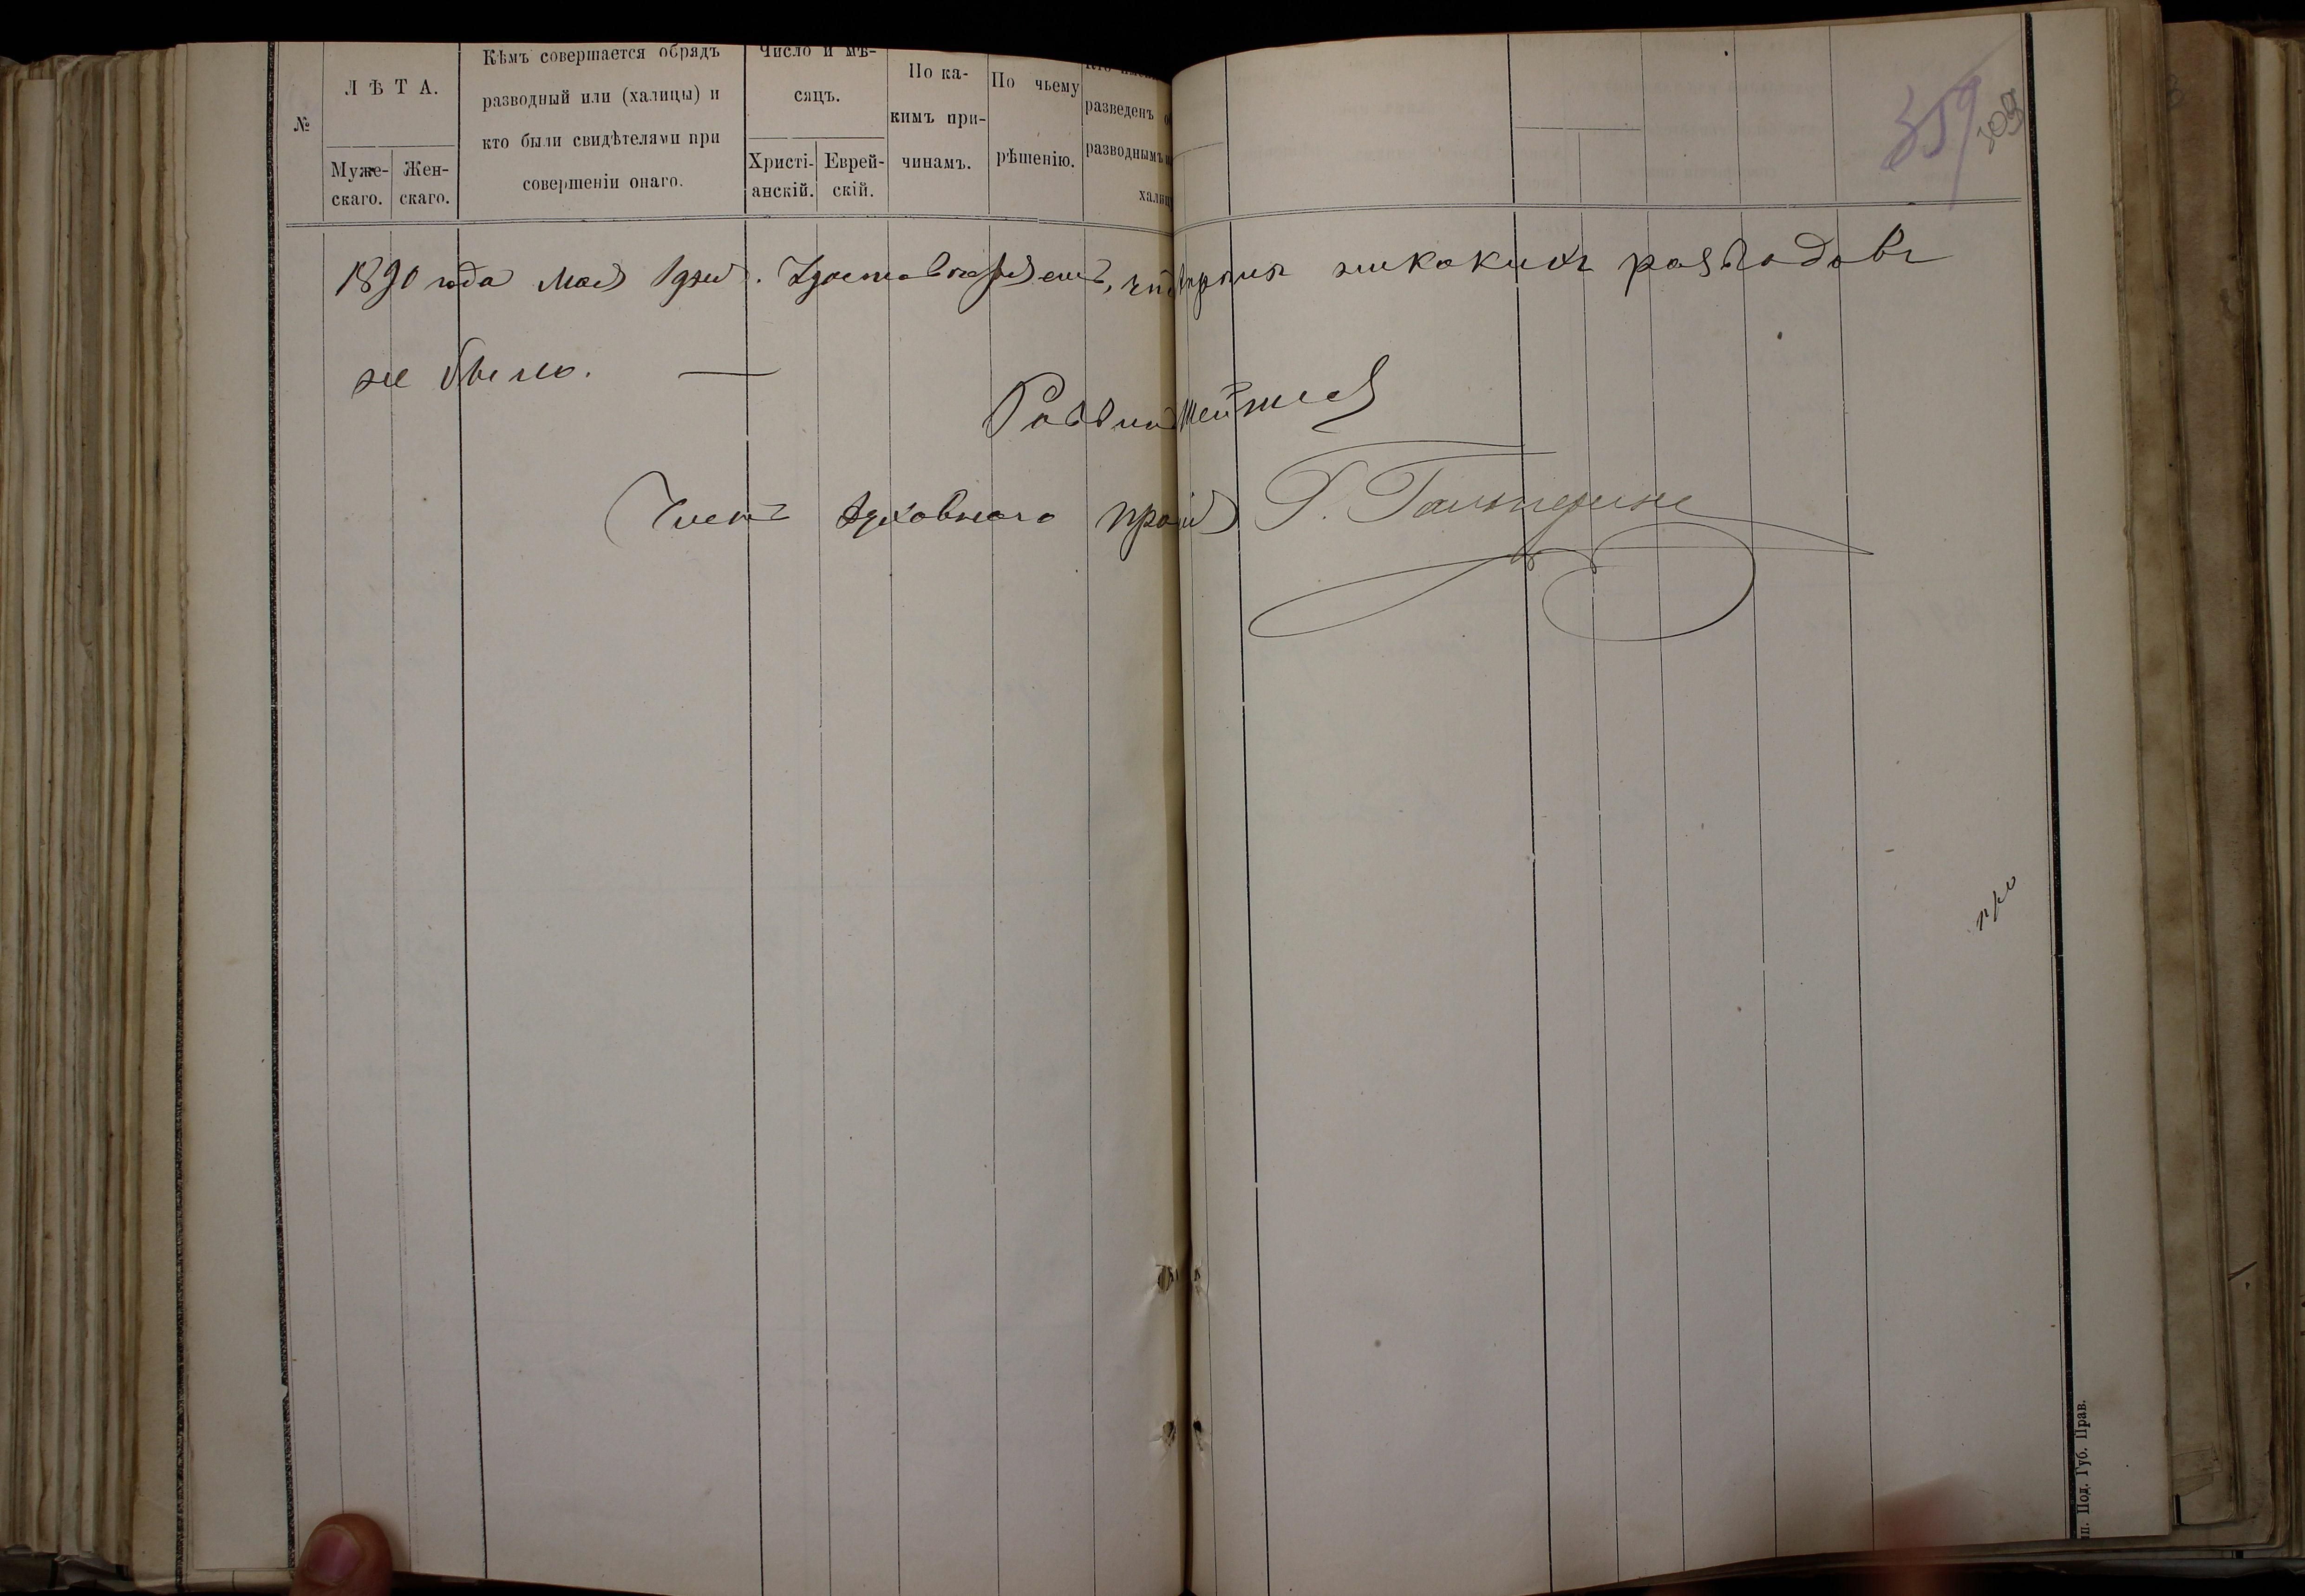 №
Л Ѣ Т А.
Муже-
скаго.
Жен-
скаго.
Кѣмъ совершается обрядъ
разводный или (халицы) и
кто были свидѣтелями при
совершеніи онаго.
Число и мѣ-
сяцъ.
Христі-
анскій.
Еврей-
скій.
По ка-
кимъ при-
чинамъ.
По чьему
рѣшенію.
разведенъ
разводнымъ
359
1890 года Мая 1 дня. никакихъ разводовъ
не было.
Раввинъ
Членъ духовнаго Г. Гальперинъ
Под. Губ. Прав.